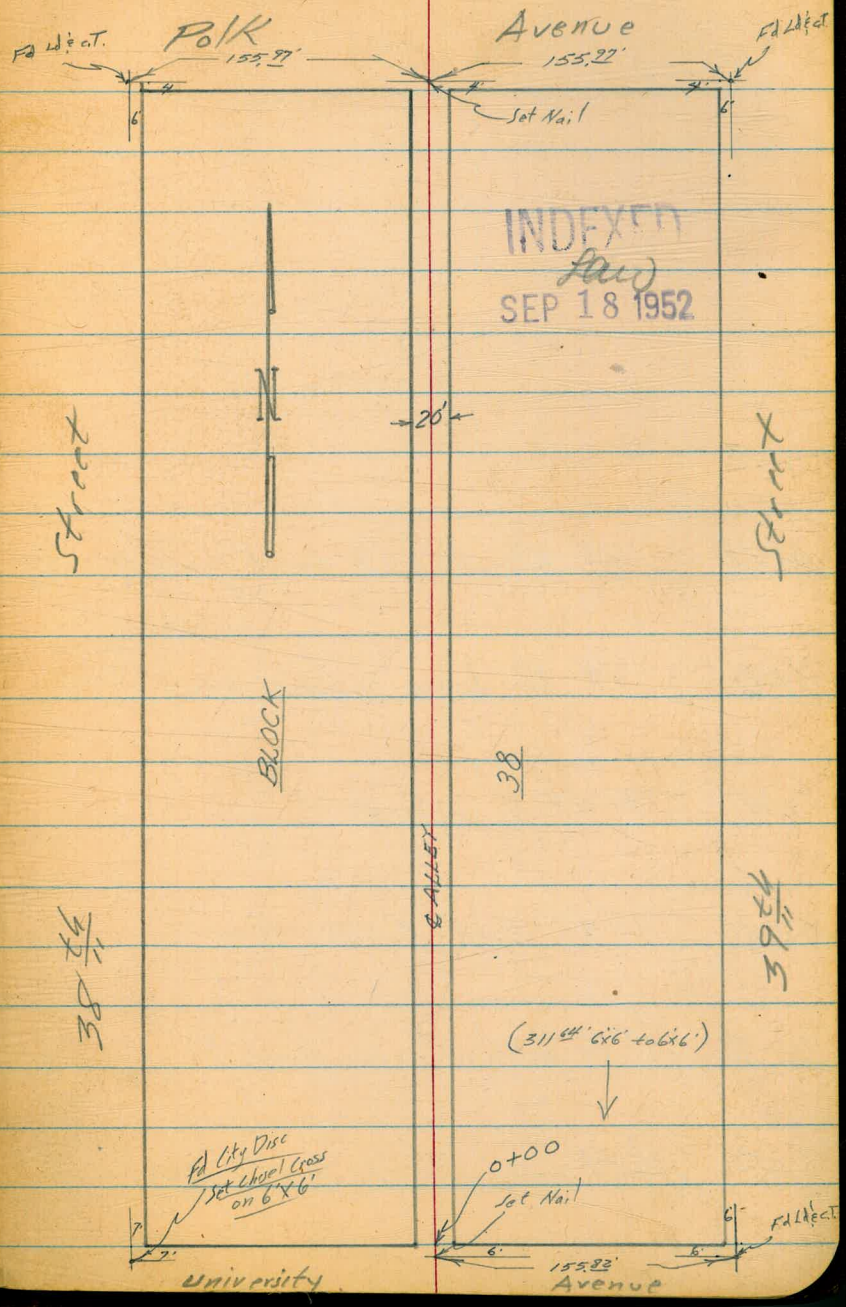 Polk Avenue
Fd Ld & c.T.
Fd Ld & c.T.
155.97'
155.97'
4' 4' 4'
6'
6'
Set Nail
INDEXED
Law
SEP 18 1952
N
20'
Street
Street
BLOCK
38
℄ ALLEY
38th
39th
(311.64' 6'x6' to 6'x6')
0+00
Fd City Disc
Set Chisel Cross
on 6'x6'
Set Nail
7'
7'
6'
6' 6'
Fd Ld & c.T.
155.82'
University Avenue